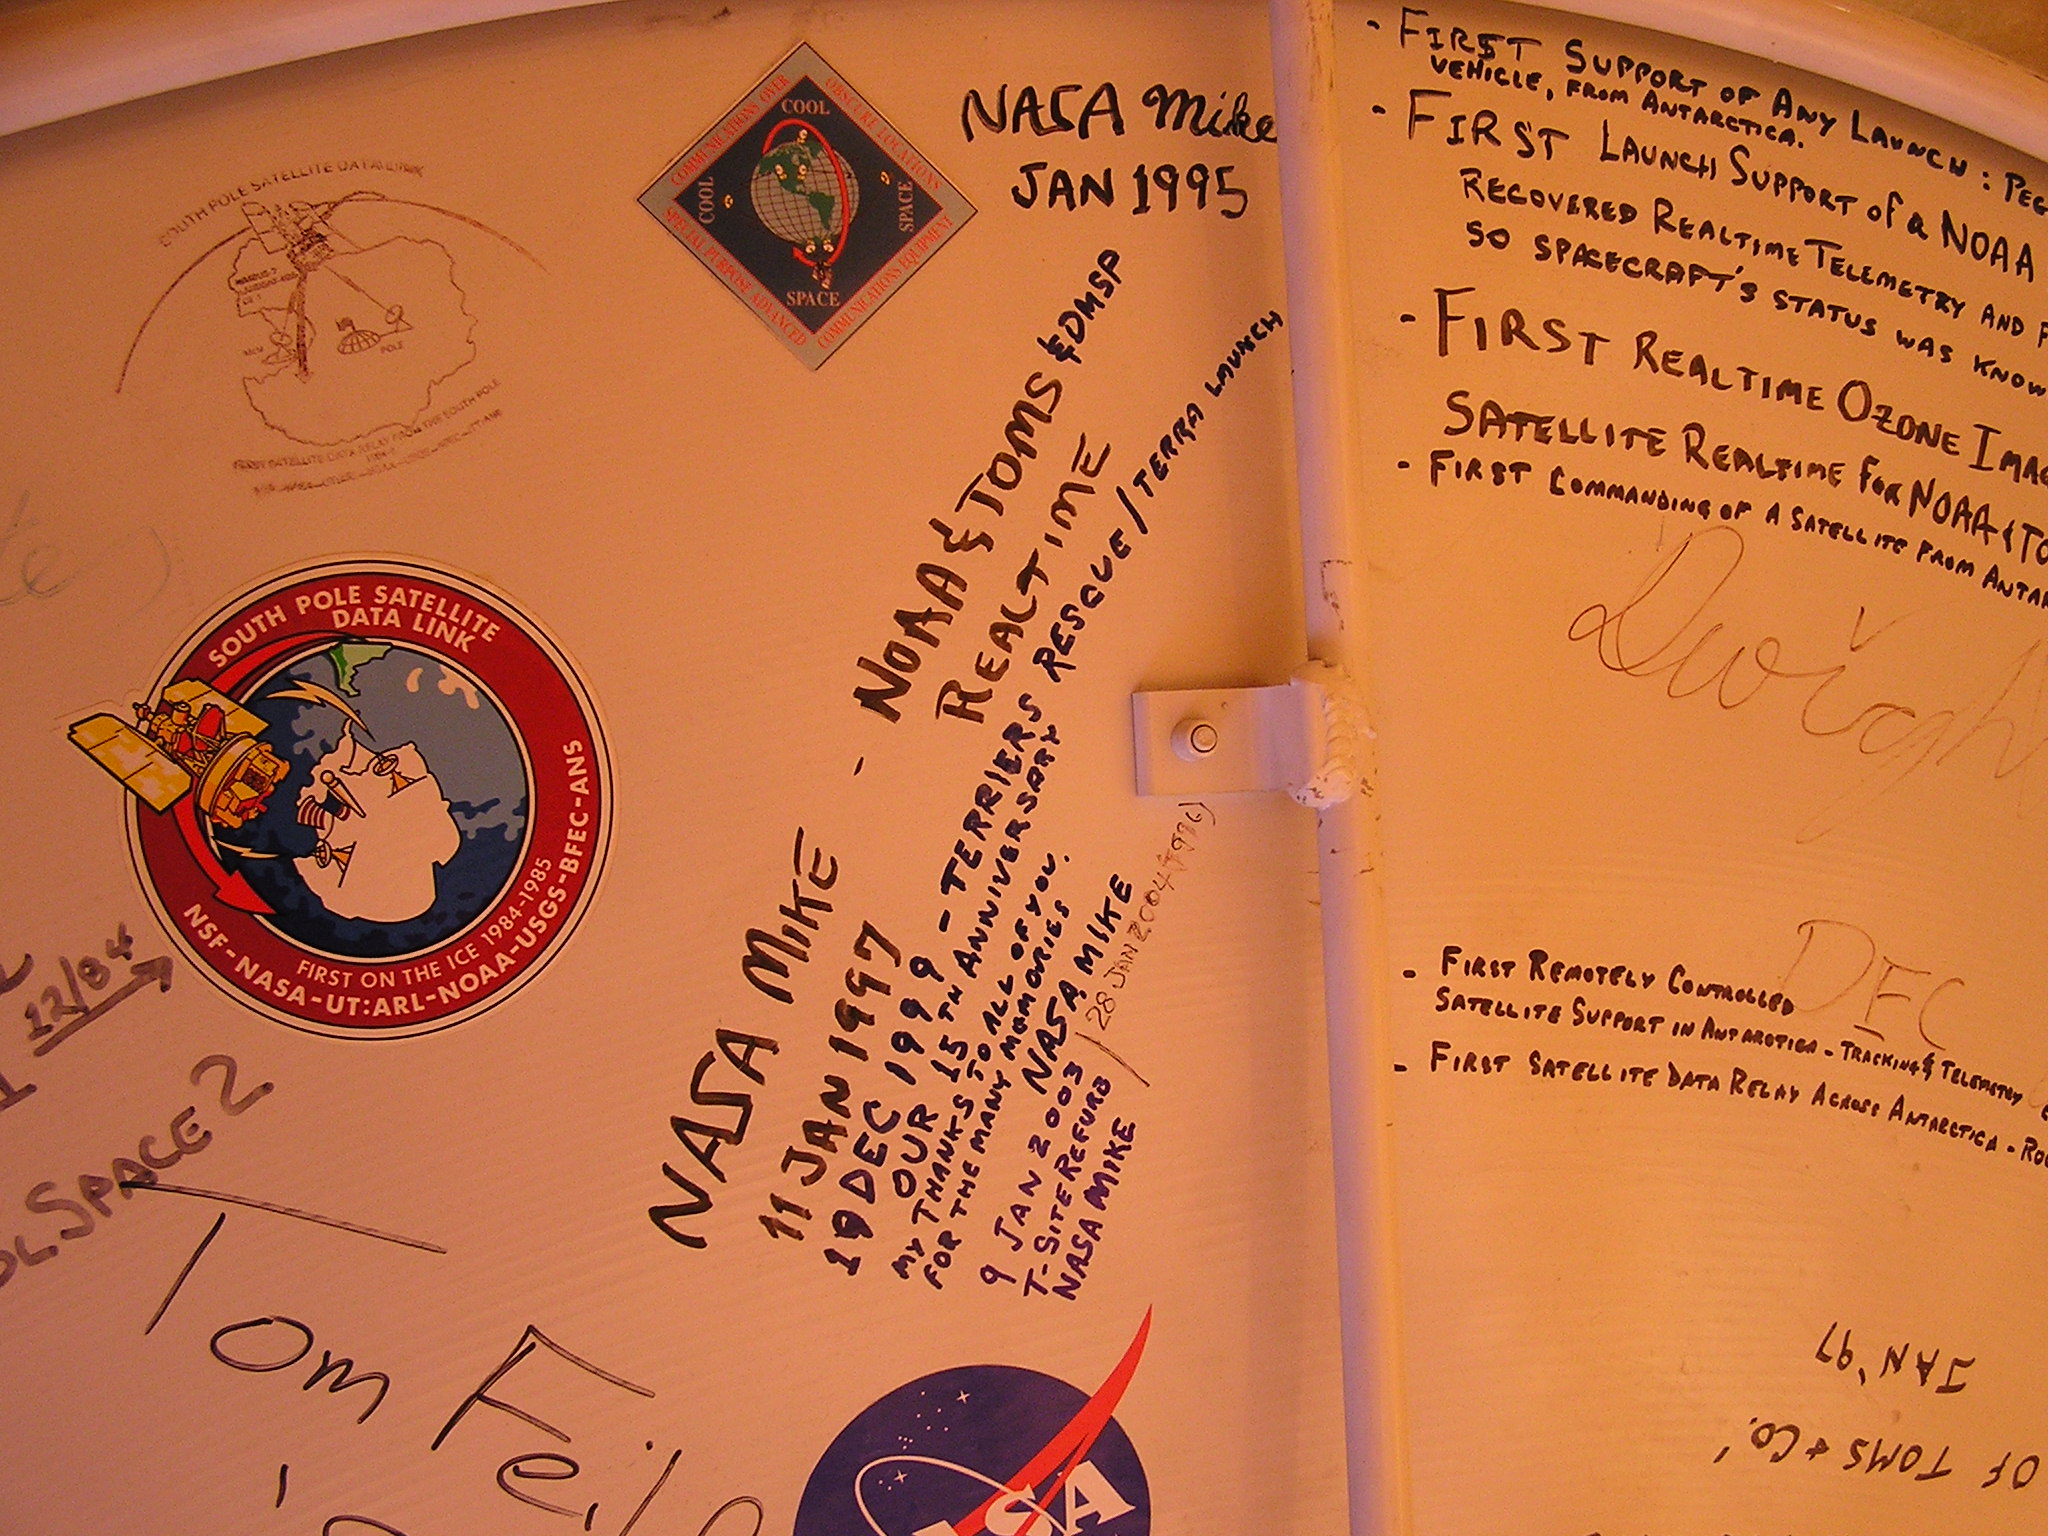 SOUTH POLE SATELLITE DATA LINK
POLE
COMMUNICATIONS OVER
OBSCURE LOCATIONS
COOL
COOL
SPACE
SPACE
SPECIAL PURPOSE ADVANCED
COMMUNICATIONS EQUIPMENT
NASA Mike
JAN 1995
SOUTH POLE SATELLITE
DATA LINK
FIRST ON THE ICE 1984-1985
NSF-NASA-UT:ARL-NOAA-USGS-BFEC-ANS
12/84
SPACE 2
Tom
NASA MIKE - NOAA & TOMS & DMSP
11 JAN 1997 REALTIME
19 DEC 1999 - TERRIERS RESCUE / TERRA LAUNCH
OUR 15TH ANNIVERSARY
MY THANKS TO ALL OF YOU.
FOR THE MANY MEMORIES
NASA MIKE
9 JAN 2003 / 28 JAN 2004
T-SITE REFURB
NASA MIKE
- FIRST SUPPORT OF ANY LAUNCH :
VEHICLE, FROM ANTARCTICA.
- FIRST LAUNCH SUPPORT OF A NOAA
RECOVERED REALTIME TELEMETRY AND
SO SPACECRAFT'S STATUS WAS KNOW
- FIRST REALTIME OZONE IMA
SATELLITE REALTIME FOR NOAA & TO
- FIRST COMMANDING OF A SATELLITE FROM ANTAR
Dwigh
DEC
- FIRST REMOTELY CONTROLLED
SATELLITE SUPPORT IN ANTARCTICA - TRACKING & TELEMETRY
- FIRST SATELLITE DATA RELAY ACROSS ANTARCTICA -
JAN '97
OF TOMS & CO.